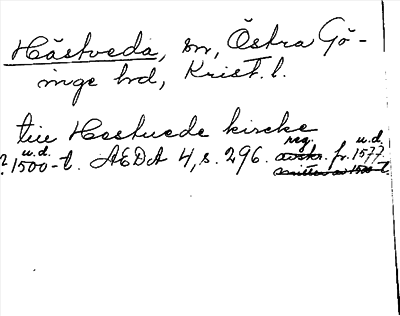 Hästveda, sn, Östra Gö-
inge hd, Krist. l.
till Hestuede kircke
? 1500-t. u.d. AEDA 4, s. 296. reg. avskr. fr. 1577 u.d.